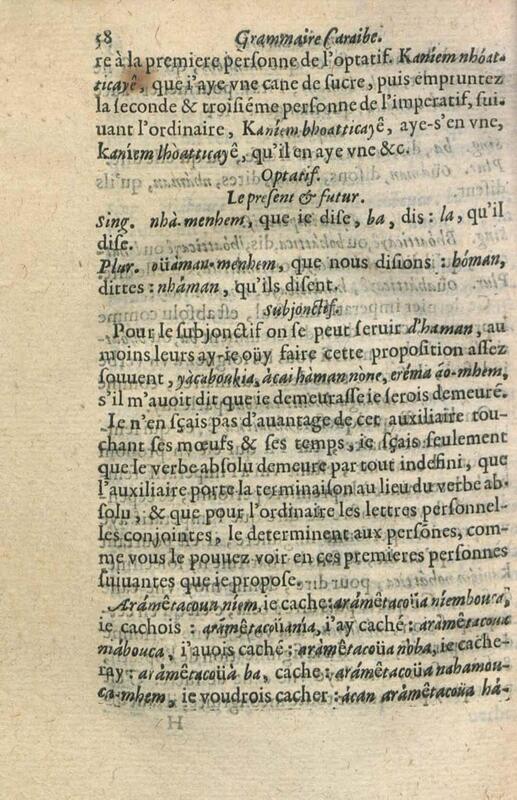 58 Grammaire Caraibe.
re à la premiere personne de l'optatif. Kaniem nhóat-
ticayê, que i'aye vne cane de sucre, puis empruntez
la seconde & troisiéme personne de l'imperatif, sui-
uant l'ordinaire, Kaniem bhoatticayê, aye-s'en vne,
Kaniem lhòatticayê, qu'il en aye vne &c.
Optatif.
Le present & futur.
Sing. nhà-menhem, que ie dise, ba, dis: la, qu'il
dise.
Plur. oüáman-menhem, que nous disions: hóman,
dittes: nháman, qu'ils disent.
Subjonctif.
Pour le subjonctif on se peut seruir d'haman, au
moins leurs ay-ie oüy faire cette proposition assez
souuent, yàcaboukia, àcai hàman nòne, erêmà ào-mhem,
s'il m'auoit dit que ie demeurasse ie serois demeuré.
Ie n'en sçais pas d'auantage de cet auxiliaire tou-
chant ses mœufs & ses temps, ie sçais seulement
que le verbe absolu demeure par tout indefini, que
l'auxiliaire porte la terminaison au lieu du verbe ab-
solu, & que pour l'ordinaire les lettres personnel-
les conjointes, le determinent aux persónes, com-
me vous le pouuez voir en ces premieres personnes
suiuantes que ie propose.
Arámêtacoun niem, ie cache: arámêtacoüa niembouca,
ie cachois: arámêtacoüania, i'ay caché: arámêtacoua
náhouca, i'auois caché: arámêtacoüa nòba, ie cache-
ray: arámêtacoüà ba, cache: arámêtacoüa nahamou-
ca-mhem, ie voudrois cacher: àcan aràmêtacoüa há-
H